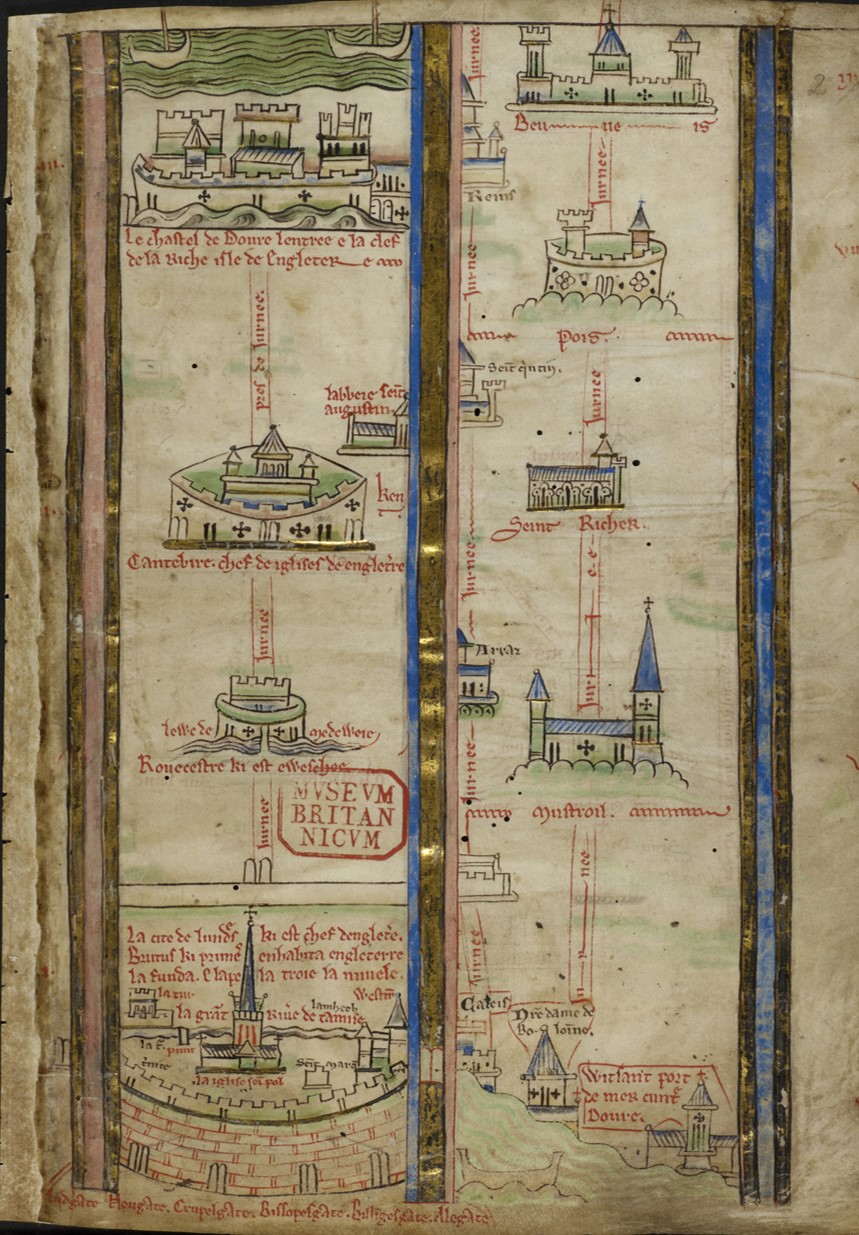 Le chastel de Doure lentree e la clef
de la riche isle de Engleter e
pres de Jurnee.
labbeie seint
augustin
Ken
Cantebire. chef de iglises de engletere
Jurnee
lewe de medeweie
Rouecestre ki est eveschee
MVSEVM
BRITAN
NICVM
Jurnee
La cite de lundres ki est chef dengletere.
Brutus ki primes enhabita engleterre
la funda. E lapela troie la nuvele.
la tur
Westm
lambeth
la grant Rivere de tamise
la iglise sei pol
Ludgate. Neugate. Crupelgate. Bissopesgate. Billigesgate. Alegate
Jurnee
Beuueis
Jurnee
Reins
Jurnee
Pois.
Seint quintin.
Jurnee
Seint Richer.
Jurnee
Jurnee
Arraz
Jurnee
Mustroil.
Jurnee
Jurnee
Caleis
Nre dame de
Boloine.
Witsant port
de mer cuntre
Doure.
2